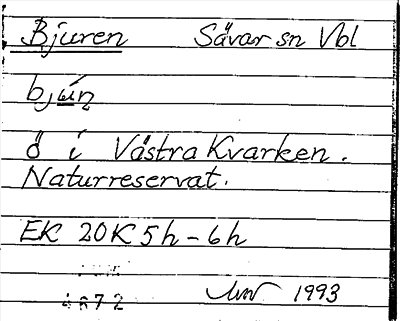 Bjuren Sävar sn Vbl
bjúṇ
ö i Västra Kvarken.
Naturreservat.
EK 20K 5h-6h
4672 1993